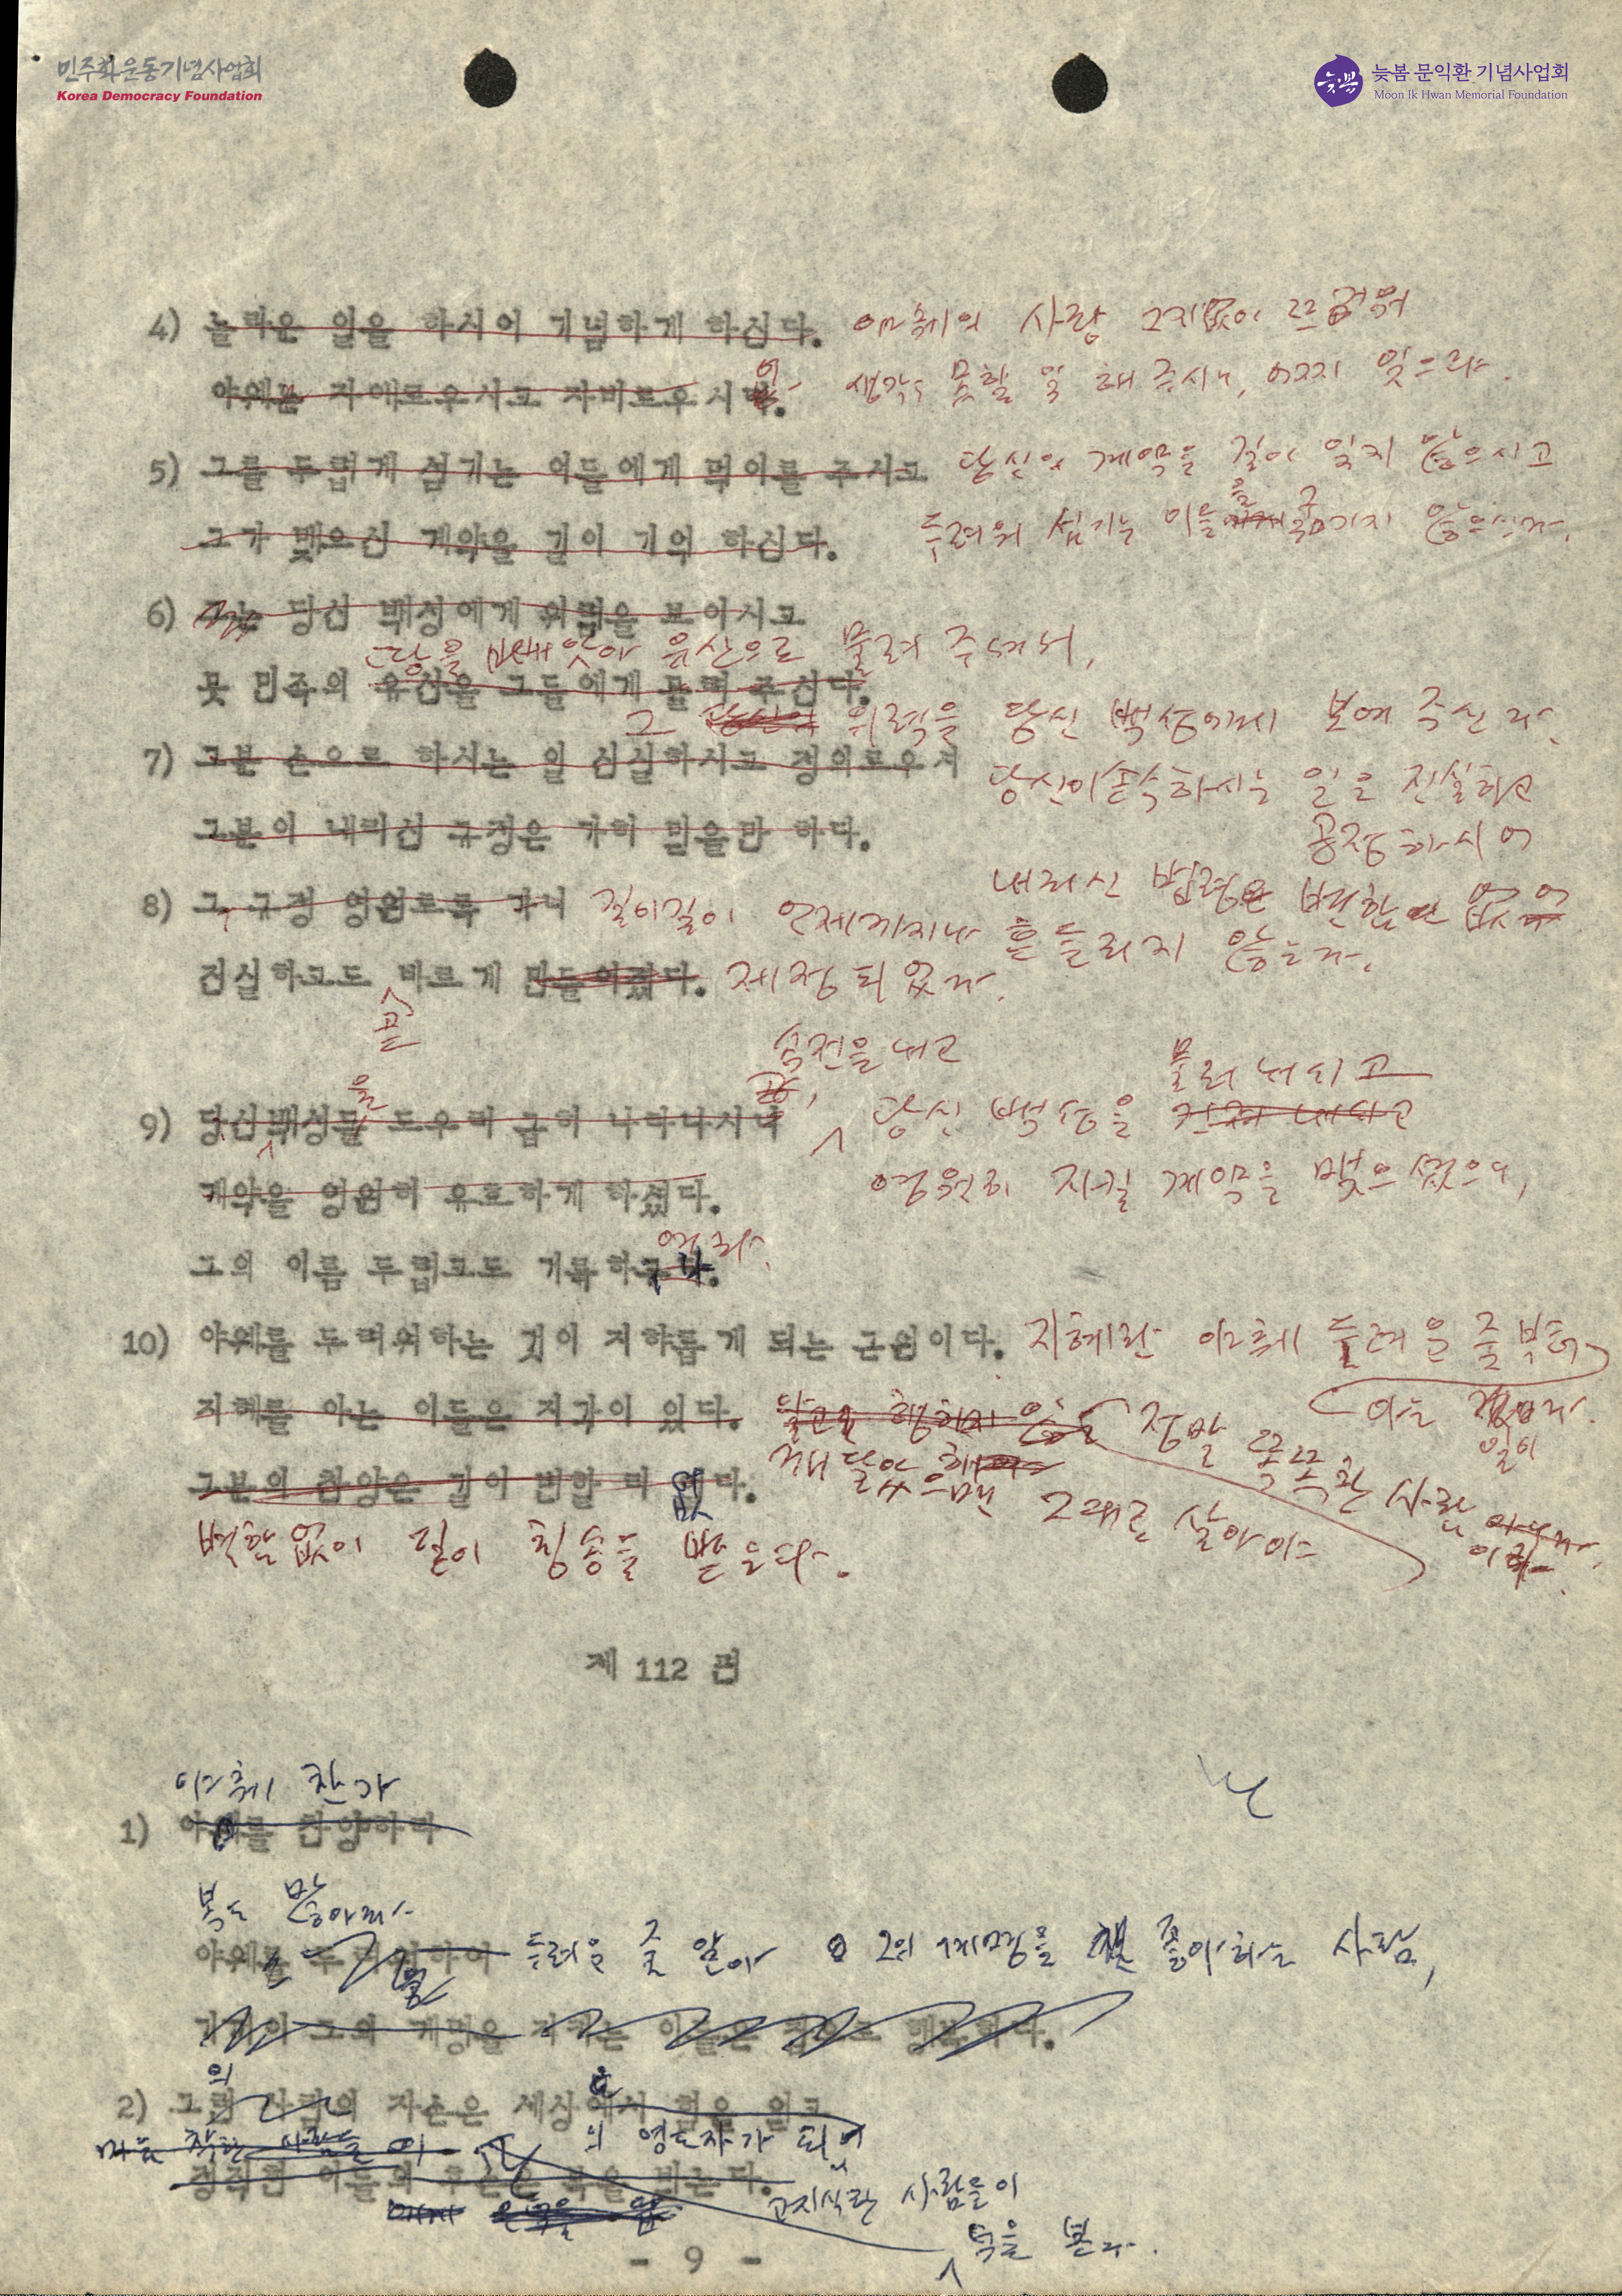 민주화운동기념사업회
Korea Democracy Foundation
늦봄 문익환 기념사업회
Moon Ik Hwan Memorial Foundation
4) 놀라운 일을 하시어 기념하게 하신다. 야훼의 사랑 그지없이 뜨거워
야웨는 자애로우시고 자비로우시 생각도 못할 일 해 주시니, 어찌 잊으랴.
5) 그를 두렵게 섬기는 이들에게 먹이를 주시고 당신의 계약을 길이 잊지 않으시고
그가 맺으신 계약을 길이 기억 하신다. 두려워 섬기는 이들 굶기지 않으신다.
6) 당신 백성에게 위력을 보이시고
땅을 빼앗아 유산으로 물려 주셔서,
뭇 민족의 유산을 그들에게 물려 주신다.
그 위력을 당신 백성에게 보여 주신다.
7) 그분 손으로 하시는 일 진실하시고 정의로우셔 당신이 손수 하시는 일은 진실하고
공정하시어
그분이 내리신 규정은 가히 믿을만 하다.
내리신 법령은 변함 없어
8) 그 규정 영원토록 가니 길이길이 언제까지나 흔들리지 않는다.
진실하고도 바르게 만들어졌다. 제정되었다.
곧
속전을 내고
물려 내시고
을
9) 당신백성들 도우러 급히 나타나시니 당신 백성을 건져 내시고
계약을 영원히 유효하게 하셨다. 영원히 지킬 계약을 맺으셨으니,
여라.
그의 이름 두렵고도 거룩하
10) 야웨를 두려워하는 것이 지하롭게 되는 근원이다. 지혜란 야훼 두려운 줄
지혜를 아는 이들은 지각이 있다. 정말 똑똑한 사람
그분의 찬양은 길이 변합 더 없다. 깨달았으면 그대로 살아야
변함없이 길이 칭송을 받는다.
제 112 편
야훼 찬가
1) 야웨를 찬양하라
복도 많아라
야웨를 두려워하여 두려운 줄 알아 그의 계명을 좋아하는 사람,
그의 계명을 지키는 이들은 참으로 행복하다.
의
2) 그런 사람의 자손은 세상에서 힘을 얻고
마음 착한 사람들이 의 영도자가 되어
정직한 이들의 후손은 복을 받는다.
고지식한 사람들이
덕을 본다.
- 9 -